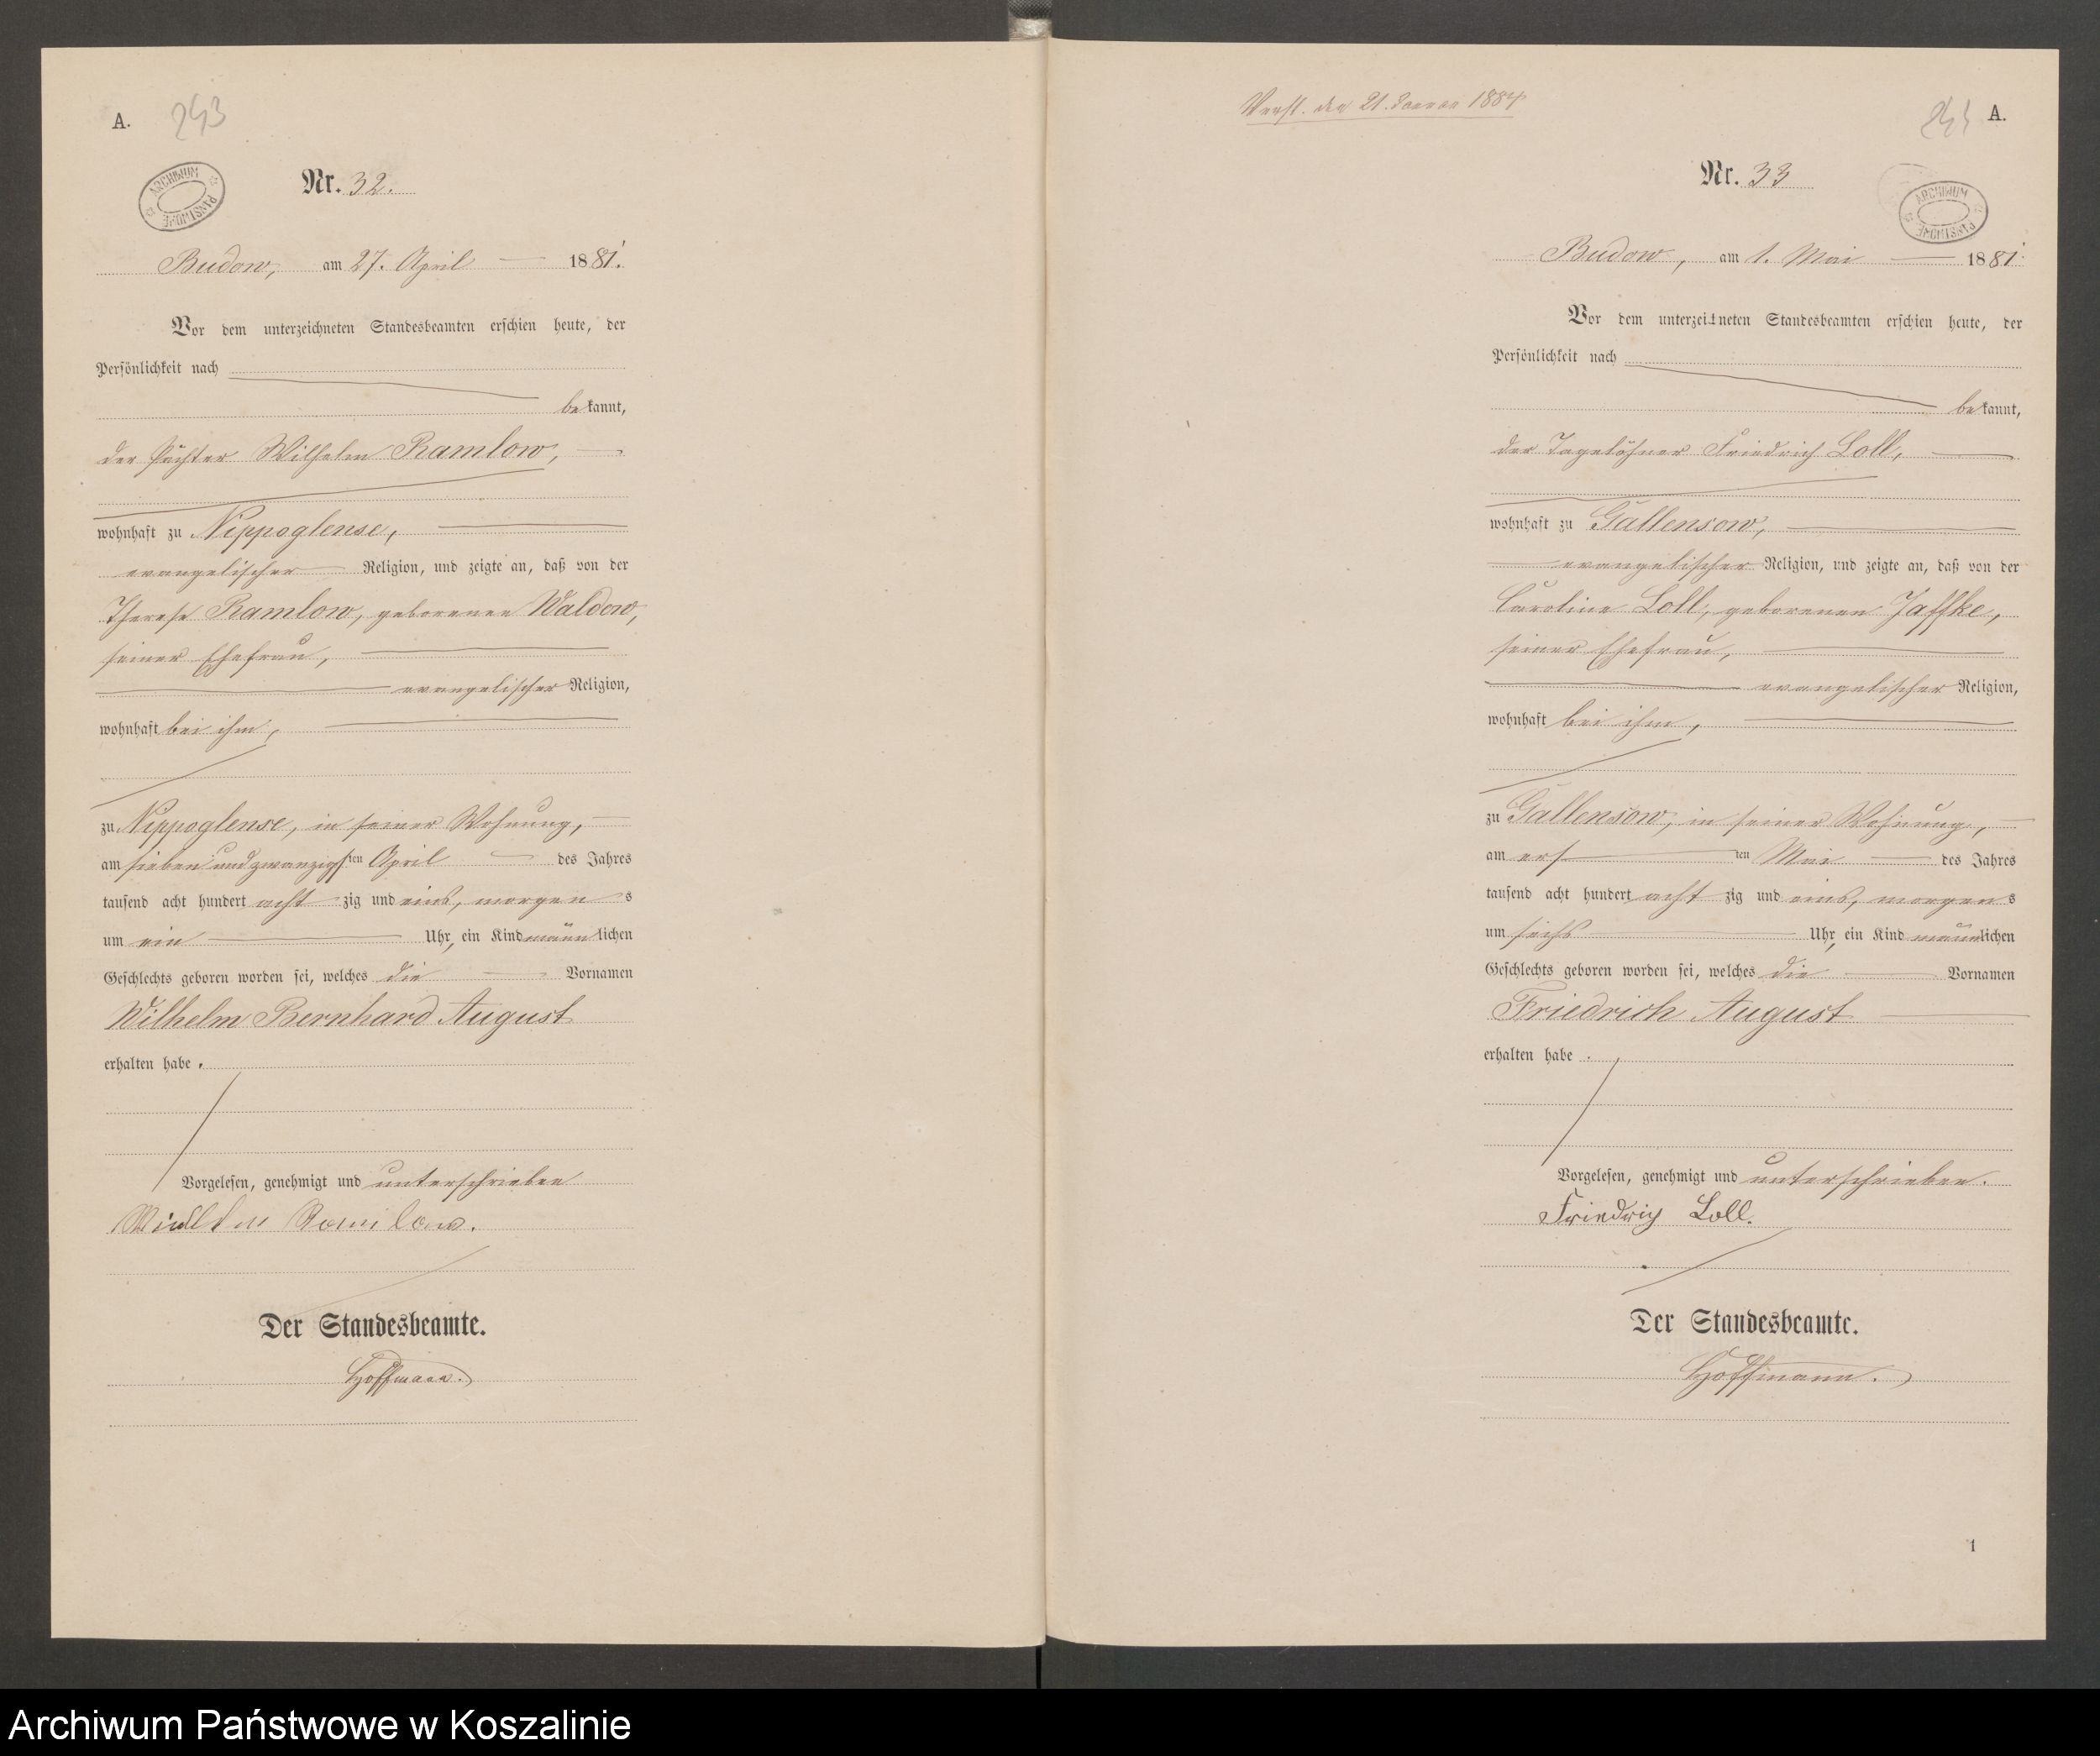 A.
243
ARCHIWUM PAŃSTWOWE
Nr. 32.
Budow, am 27. April 1881.
Vor dem unterzeichneten Standesbeamten erschien heute, der
Persönlichkeit nach
bekannt,
der Pächter Wilhelm Ramlow,
wohnhaft zu Nippoglense,
evangelischer Religion, und zeigte an, daß von der
Therese Ramlow, geborenen Waldow,
seiner Ehefrau,
evangelischer Religion,
wohnhaft bei ihm,
zu Nippoglense, in seiner Wohnung,
am sieben und zwanzigsten April des Jahres
tausend acht hundert acht zig und eins, morgens
um ein Uhr, ein Kind männlichen
Geschlechts geboren worden sei, welches die Vornamen
Wilhelm Bernhard August
erhalten habe.
Vorgelesen, genehmigt und unterschrieben
Ramlow.
Der Standesbeamte.
Hoffmann.
Verst. den 21. Januar 1884
A.
ARCHIWUM PAŃSTWOWE
Nr. 33
Budow, am 1. Mai 1881.
Vor dem unterzeichneten Standesbeamten erschien heute, der
Persönlichkeit nach
bekannt,
der Tagelöhner Friedrich Loll,
wohnhaft zu Gallensow,
evangelischer Religion, und zeigte an, daß von der
Caroline Loll, geborenen Jaffke,
seiner Ehefrau,
evangelischer Religion,
wohnhaft bei ihm,
zu Gallensow, in seiner Wohnung,
am ersten Mai des Jahres
tausend acht hundert acht zig und eins, morgens
um sechs Uhr, ein Kind männlichen
Geschlechts geboren worden sei, welches die Vornamen
Friedrich August
erhalten habe.
Vorgelesen, genehmigt und unterschrieben.
Friedrich Loll.
Der Standesbeamte.
Hoffmann.
1
Archiwum Państwowe w Koszalinie